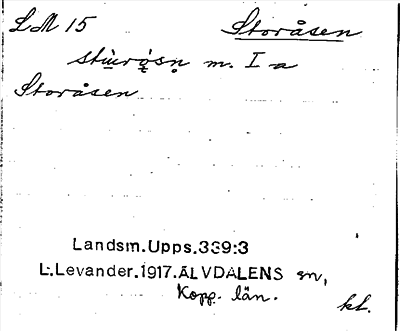 LM 15 Storåsen
m. I a
Storåsen
Landsm.Upps.339:3
L.Levander.1917.ÄLVDALENS sn,
Kopp. län.
kl.